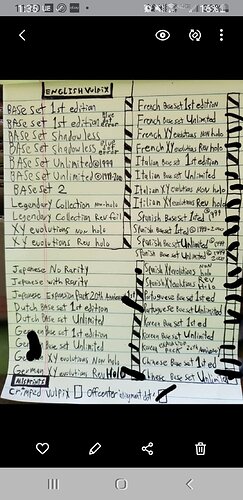 11:35
65%
ENGLISH VULPIX
BASE SET 1st edition
BASE SET 1st edition error
BASE SET Shadowless
BASE SET Shadowless error
BASE SET Unlimited ©1999
BASE SET Unlimited ©1999-2000
BASE SET 2
Legendary Collection Non-holo
Legendary Collection Rev foil
XY evolutions Non holo
XY evolutions Rev holo
Japanese No Rarity
Japanese with Rarity
Japanese Expansion Pack 20th
Dutch Base set 1st edition
Dutch Base set Unlimited
Base set 1st edition
Base set Unlimited
XY evolutions Non holo
German XY evolutions Rev Holo
MISPRINTS
Crimped Vulpix
Off center
French Base set 1st edition
French Base set Unlimited
French XY evolutions Non holo
French XY evolutions Rev holo
Italian Base set 1st edition
Italian Base set Unlimited
Italian XY evolutions Non holo
Italian XY evolutions Rev holo
Spanish Base set 1st ©1999
Spanish Base set 1st ©1999-2000
Spanish Base set Unlimited ©1999
Spanish Base set Unlimited
Spanish XY evolutions Non holo
Spanish XY evolutions Rev Holo
Portuguese Base set 1st ed
Portuguese Base set Unlimited
Korean Base set 1st ed
Korean Base set Unlimited
Korean expansion pack 20th
Chinese Base set 1st ed
Chinese Base set Unlimited